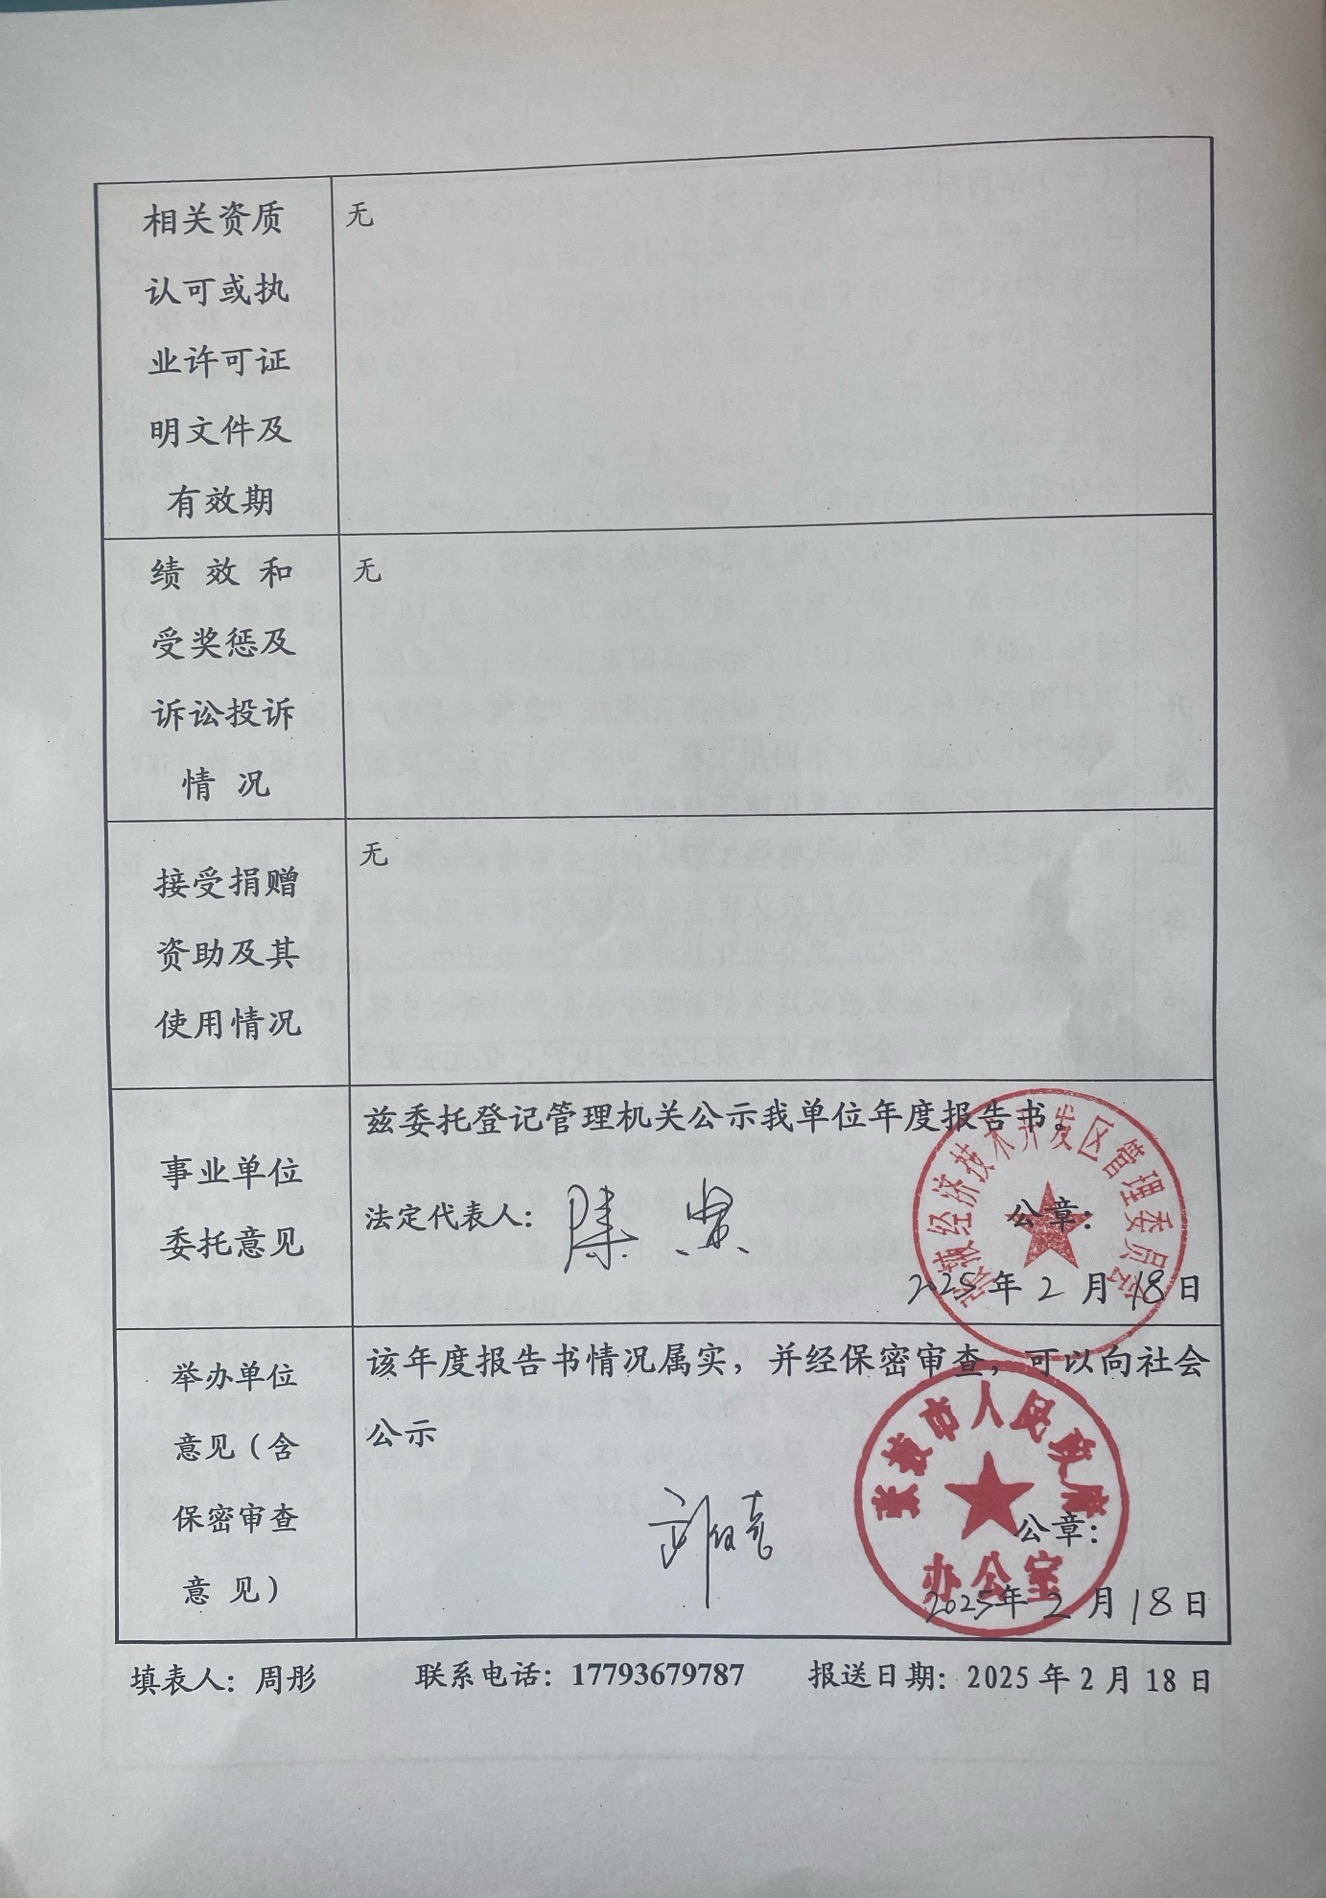 相关资质
认可或执
业许可证
明文件及
有效期
无
绩效和
受奖惩及
诉讼投诉
情况
无
接受捐赠
资助及其
使用情况
无
事业单位
委托意见
兹委托登记管理机关公示我单位年度报告书。
法定代表人：陈
公章：
2025年2月18日
张掖经济技术开发区管理委员会
举办单位
意见（含
保密审查
意见）
该年度报告书情况属实，并经保密审查，可以向社会
公示
公章：
2025年2月18日
张掖市人民政府
办公室
填表人：周彤 联系电话：17793679787 报送日期：2025年2月18日